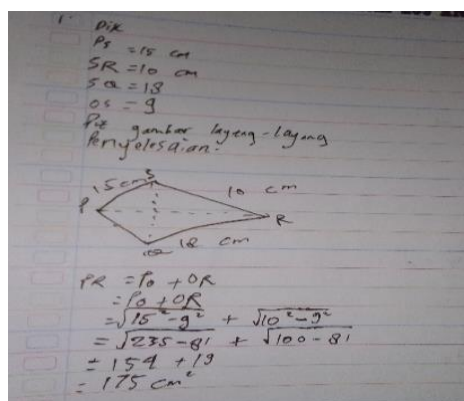 1.
Dik
PS = 15 cm
SR = 10 cm
SQ = 18
OS = 9
Dit gambar layang-layang
Penyelesaian:
15 cm S 10 cm
P R
Q 18 cm
PR = PO + OR
= PO + OR
= √15² - 9² + √10² - 9²
= √235 - 81 + √100 - 81
= 154 + 19
= 175 cm²